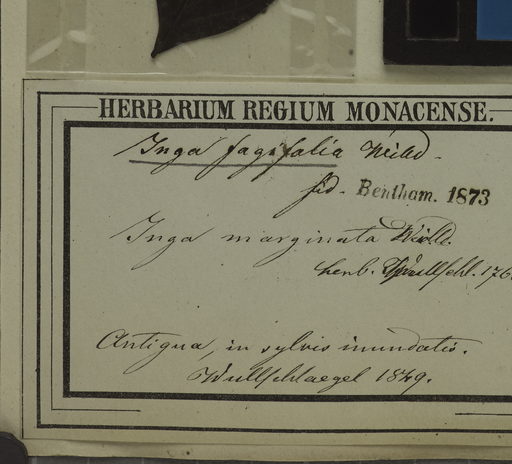 HERBARIUM REGIUM MONACENSE.
Inga fagifolia Willd.
fid. Bentham. 1873
Inga marginata Willd.
herb. Wullschl. 176
Antigua, in sylvis inundatis.
Wullschlaegel 1849.